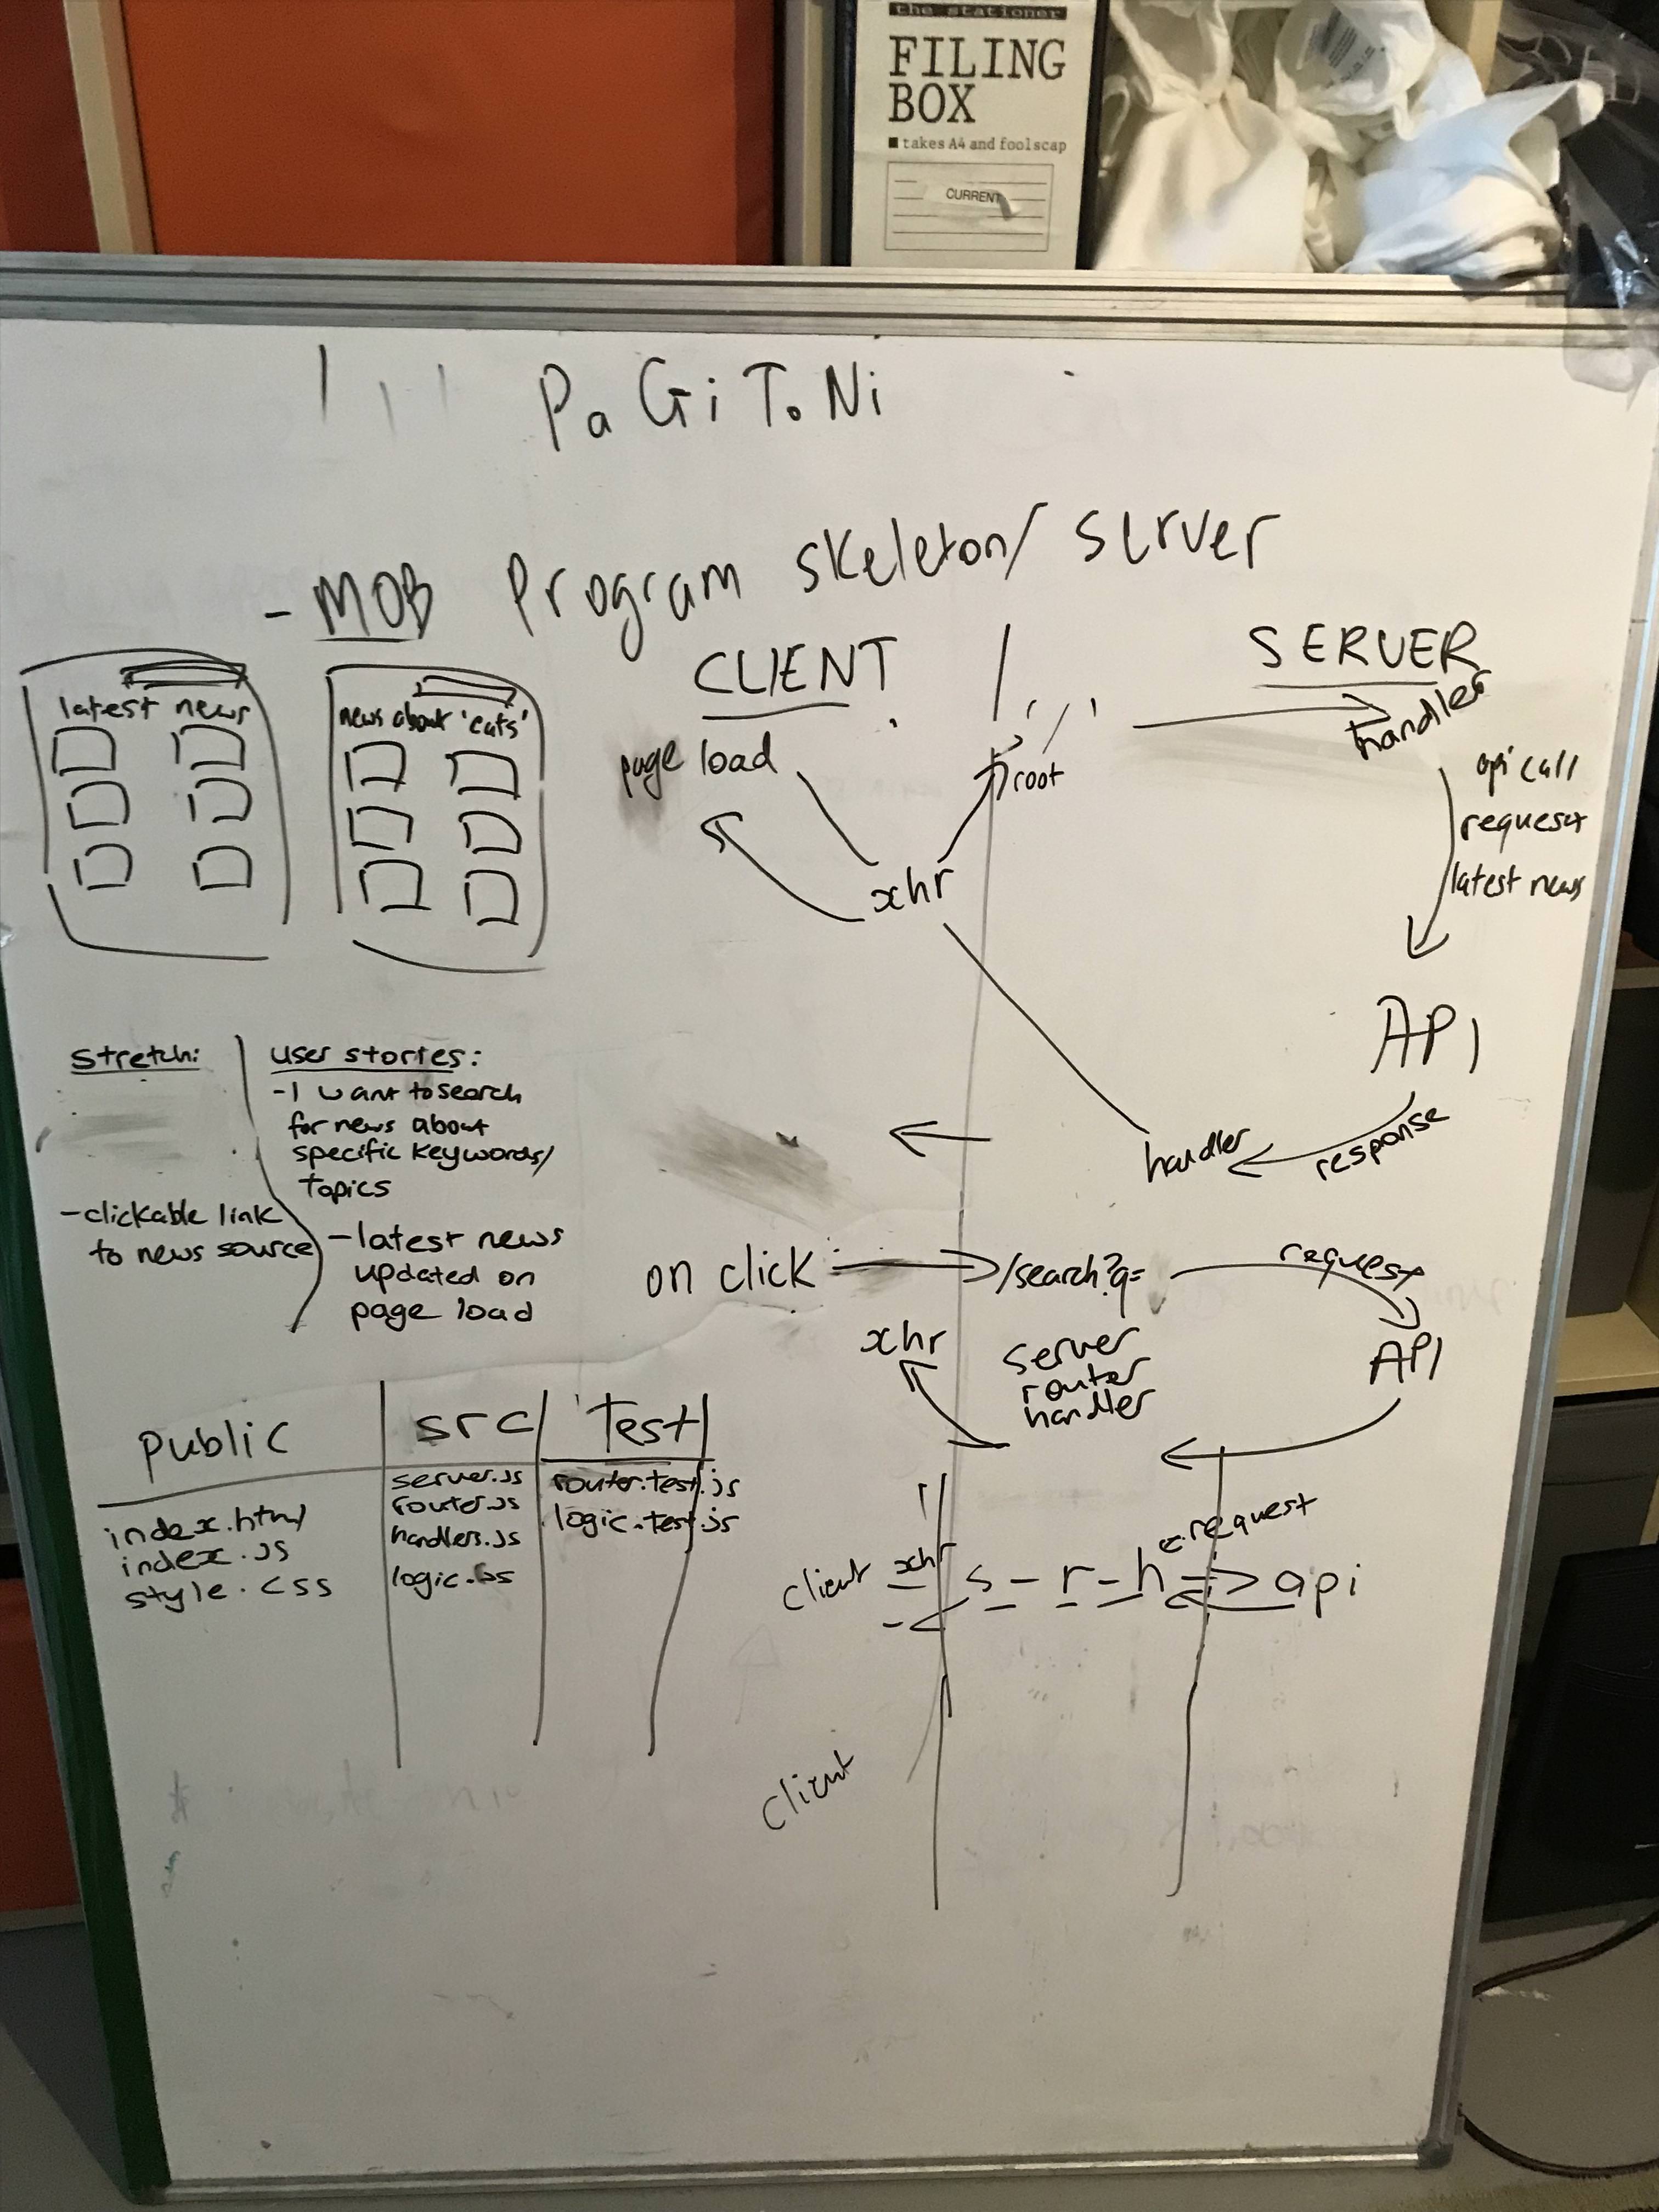 the stationer
FILING
BOX
takes A4 and foolscap
CURRENT
Pa Gi To Ni
- MOB Program skeleton/ server
latest news
news about 'cats'
CLIENT
SERVER
page load
'/'
root
handler
api call
request
latest news
xhr
API
response
handler
Stretch:
- clickable link
to news source
user stories:
- I want to search
for news about
specific keywords/
topics
- latest news
updated on
page load
on click
/search?q=
request
API
xhr
server
router
handler
public
index.html
index.js
style.css
src
server.js
router.js
handlers.js
logic.js
Test
router.test.js
logic.test.js
request
client xhr s - r - h => api
client